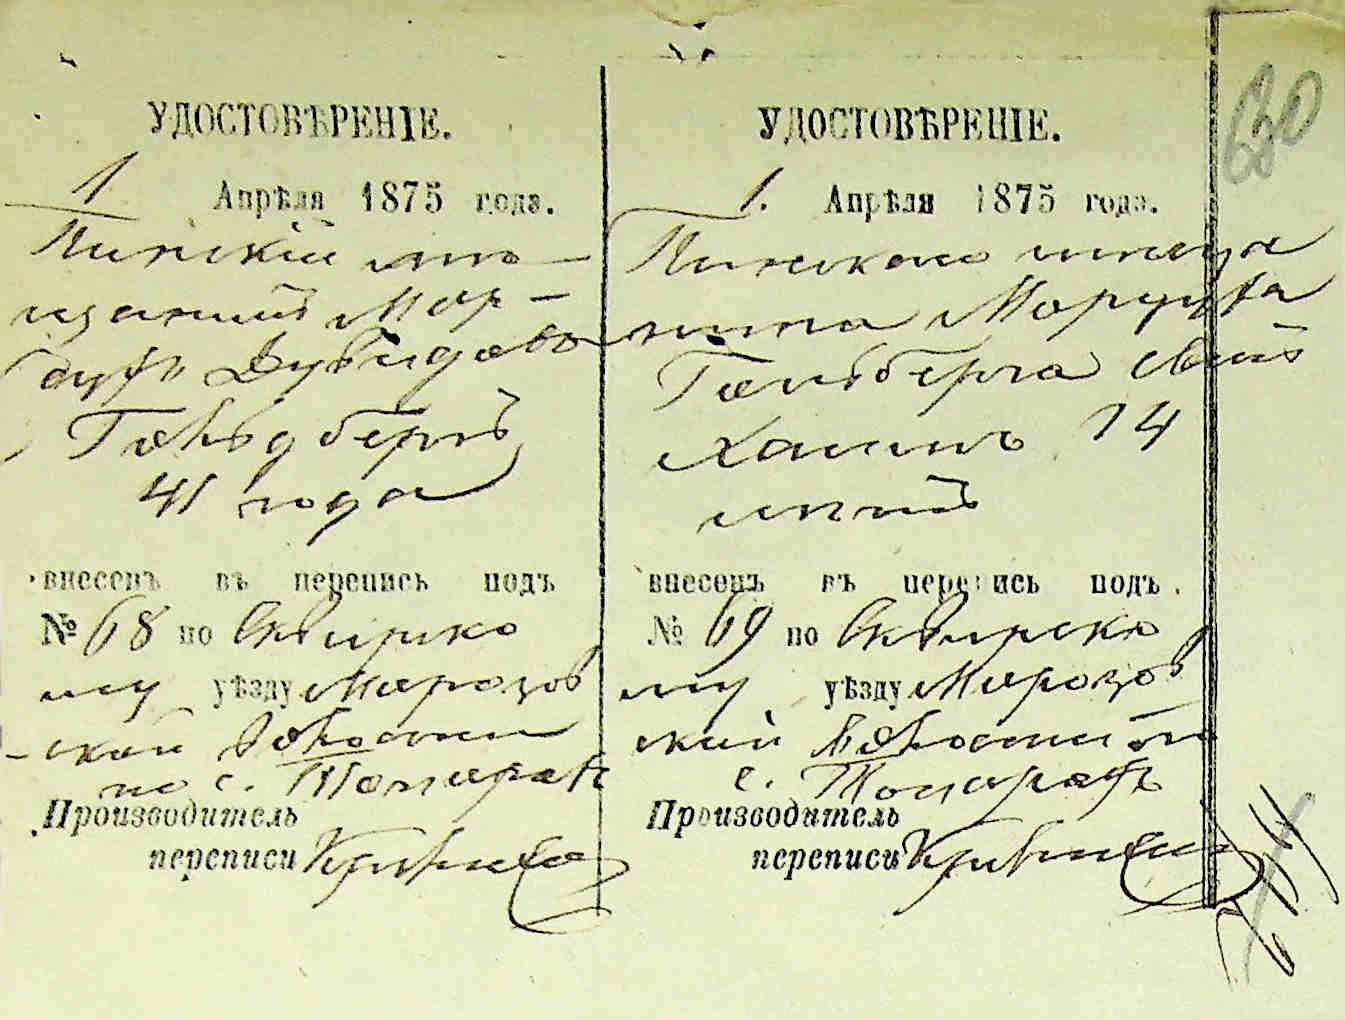 УДОСТОВѢРЕНІЕ.
1 Апрѣля 1875 года.
Пинскій мѣ-
щанинъ Мор-
духъ Дувидовъ
Гольдбергъ
41 года
внесенъ въ перепись подъ
№ 68 по Сквирско
му уѣзду Морозов
-ской волости
по с.
Производитель
переписи
УДОСТОВѢРЕНІЕ.
1. Апрѣля 1875 года.
Пинскаго мѣща
нина Мордуха
Гольдберга сынъ
Хаимъ 14
лѣтъ
внесенъ въ перепись подъ
№ 69 по Сквирско
му уѣзду Морозов
ской волости по
с.
Производитель
переписи